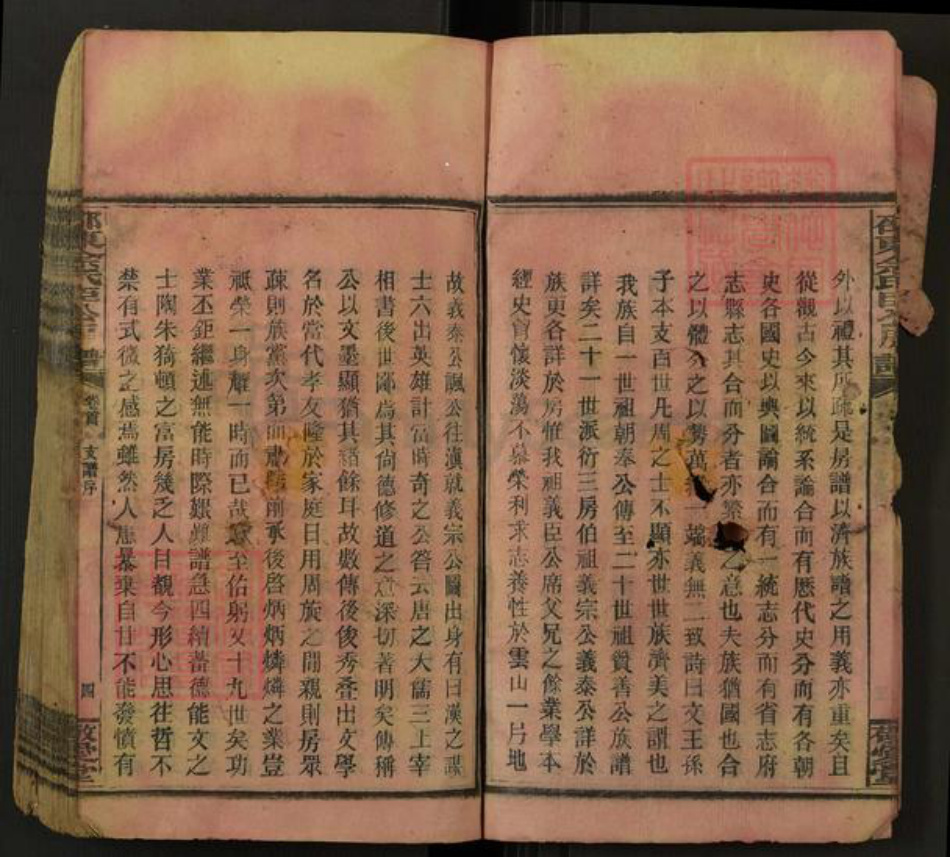 外以禮其疏是房譜以濟族譜之用義亦重矣且
從觀古今來以統系論合而有歷代史分而有各朝
史各國史以輿圖論合而有一統志分而有省志府
志縣志其合而分者亦繁之意也夫族猶國也合
之以體分之以勢萬一端義無二致詩曰文王孫
子本支百世凡周之士不顯亦世世族濟美之謂也
我族自一世祖朝奉公傳至二十世祖質善公族譜
詳矣二十一世派衍三房伯祖義宗公義泰公詳於
族更各詳於房惟我祖義臣公席父兄之餘業學本
經史曾懷淡蕩不慕榮利求志養性於雲山一片地
故義泰公諷公往滇就義宗公圖出身有曰漢之謀
士六出英雄計當時奇之公答云唐之大儒三上宰
相書後世鄙為其尚德修道之意深切著明矣傳稱
公以文墨顯猶其緒餘耳故數傳後俊秀叠出文學
名於當代孝友隆於家庭日用周旋之間親則房眾
疎則族黨次第而肅焉前承後啓炳炳燐燐之業豈
祇榮一身耀一時而已哉至佑躬又十九世矣功
業丕鉅繼述無能時際艱難譜急四續蓄德能文之
士陶朱猗頓之富房幾乏人目觀今形心思往哲不
禁有式微之感焉雖然人患暴棄自甘不能發憤有
卷首
支譜序
四